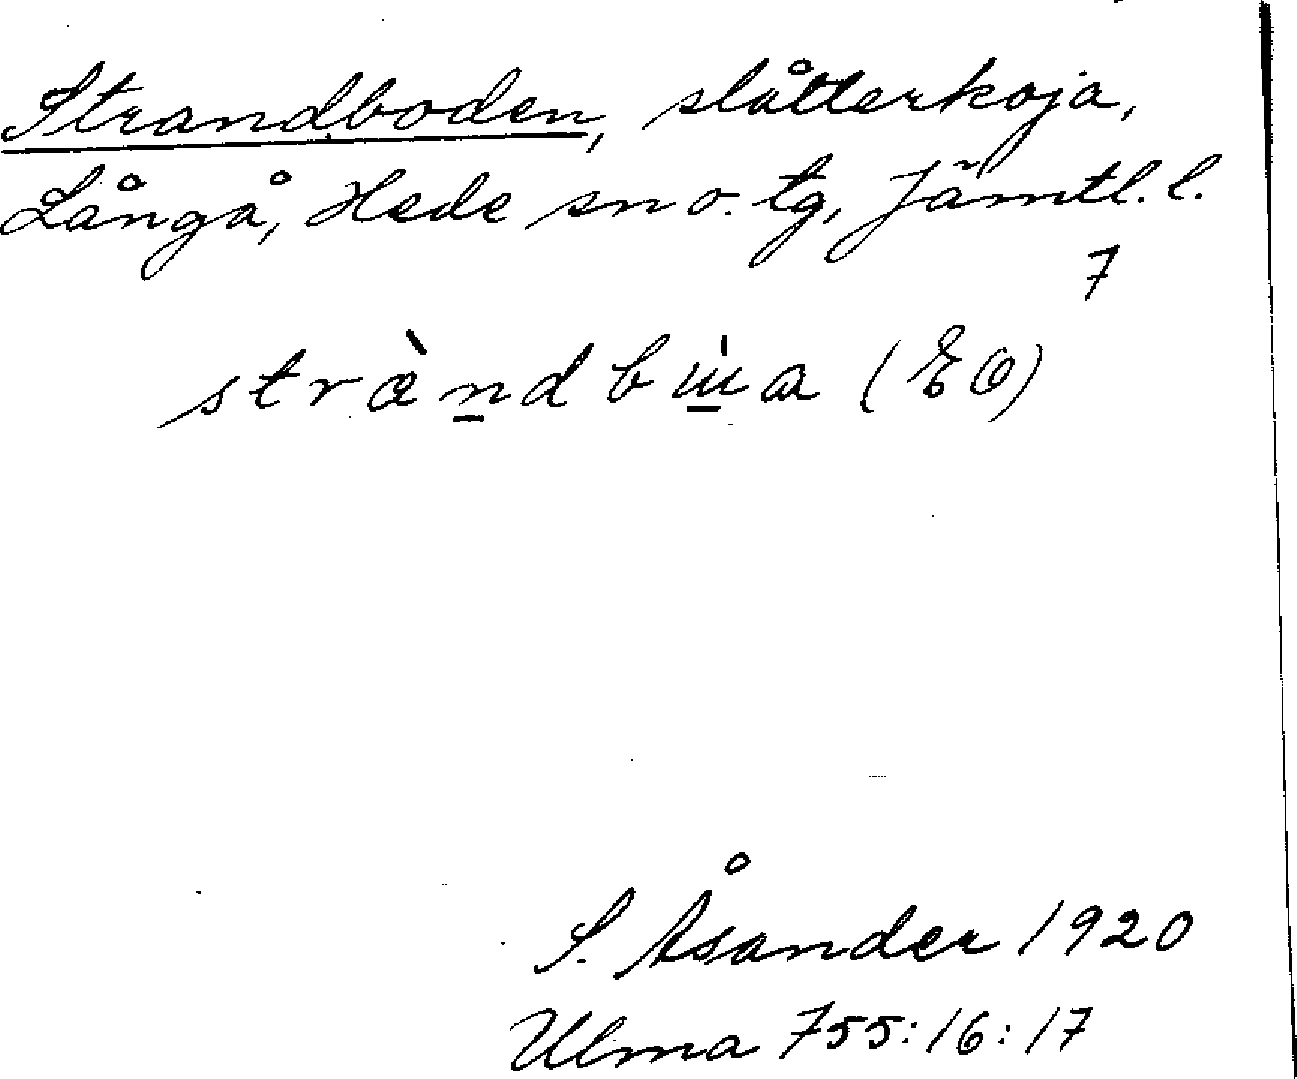 Strandboden, slåtterkoja,
Långå, Hede sn o. tg, Jämtl. l.
7
(EO)
S. Åsander 1920
Ulma 755:16:17